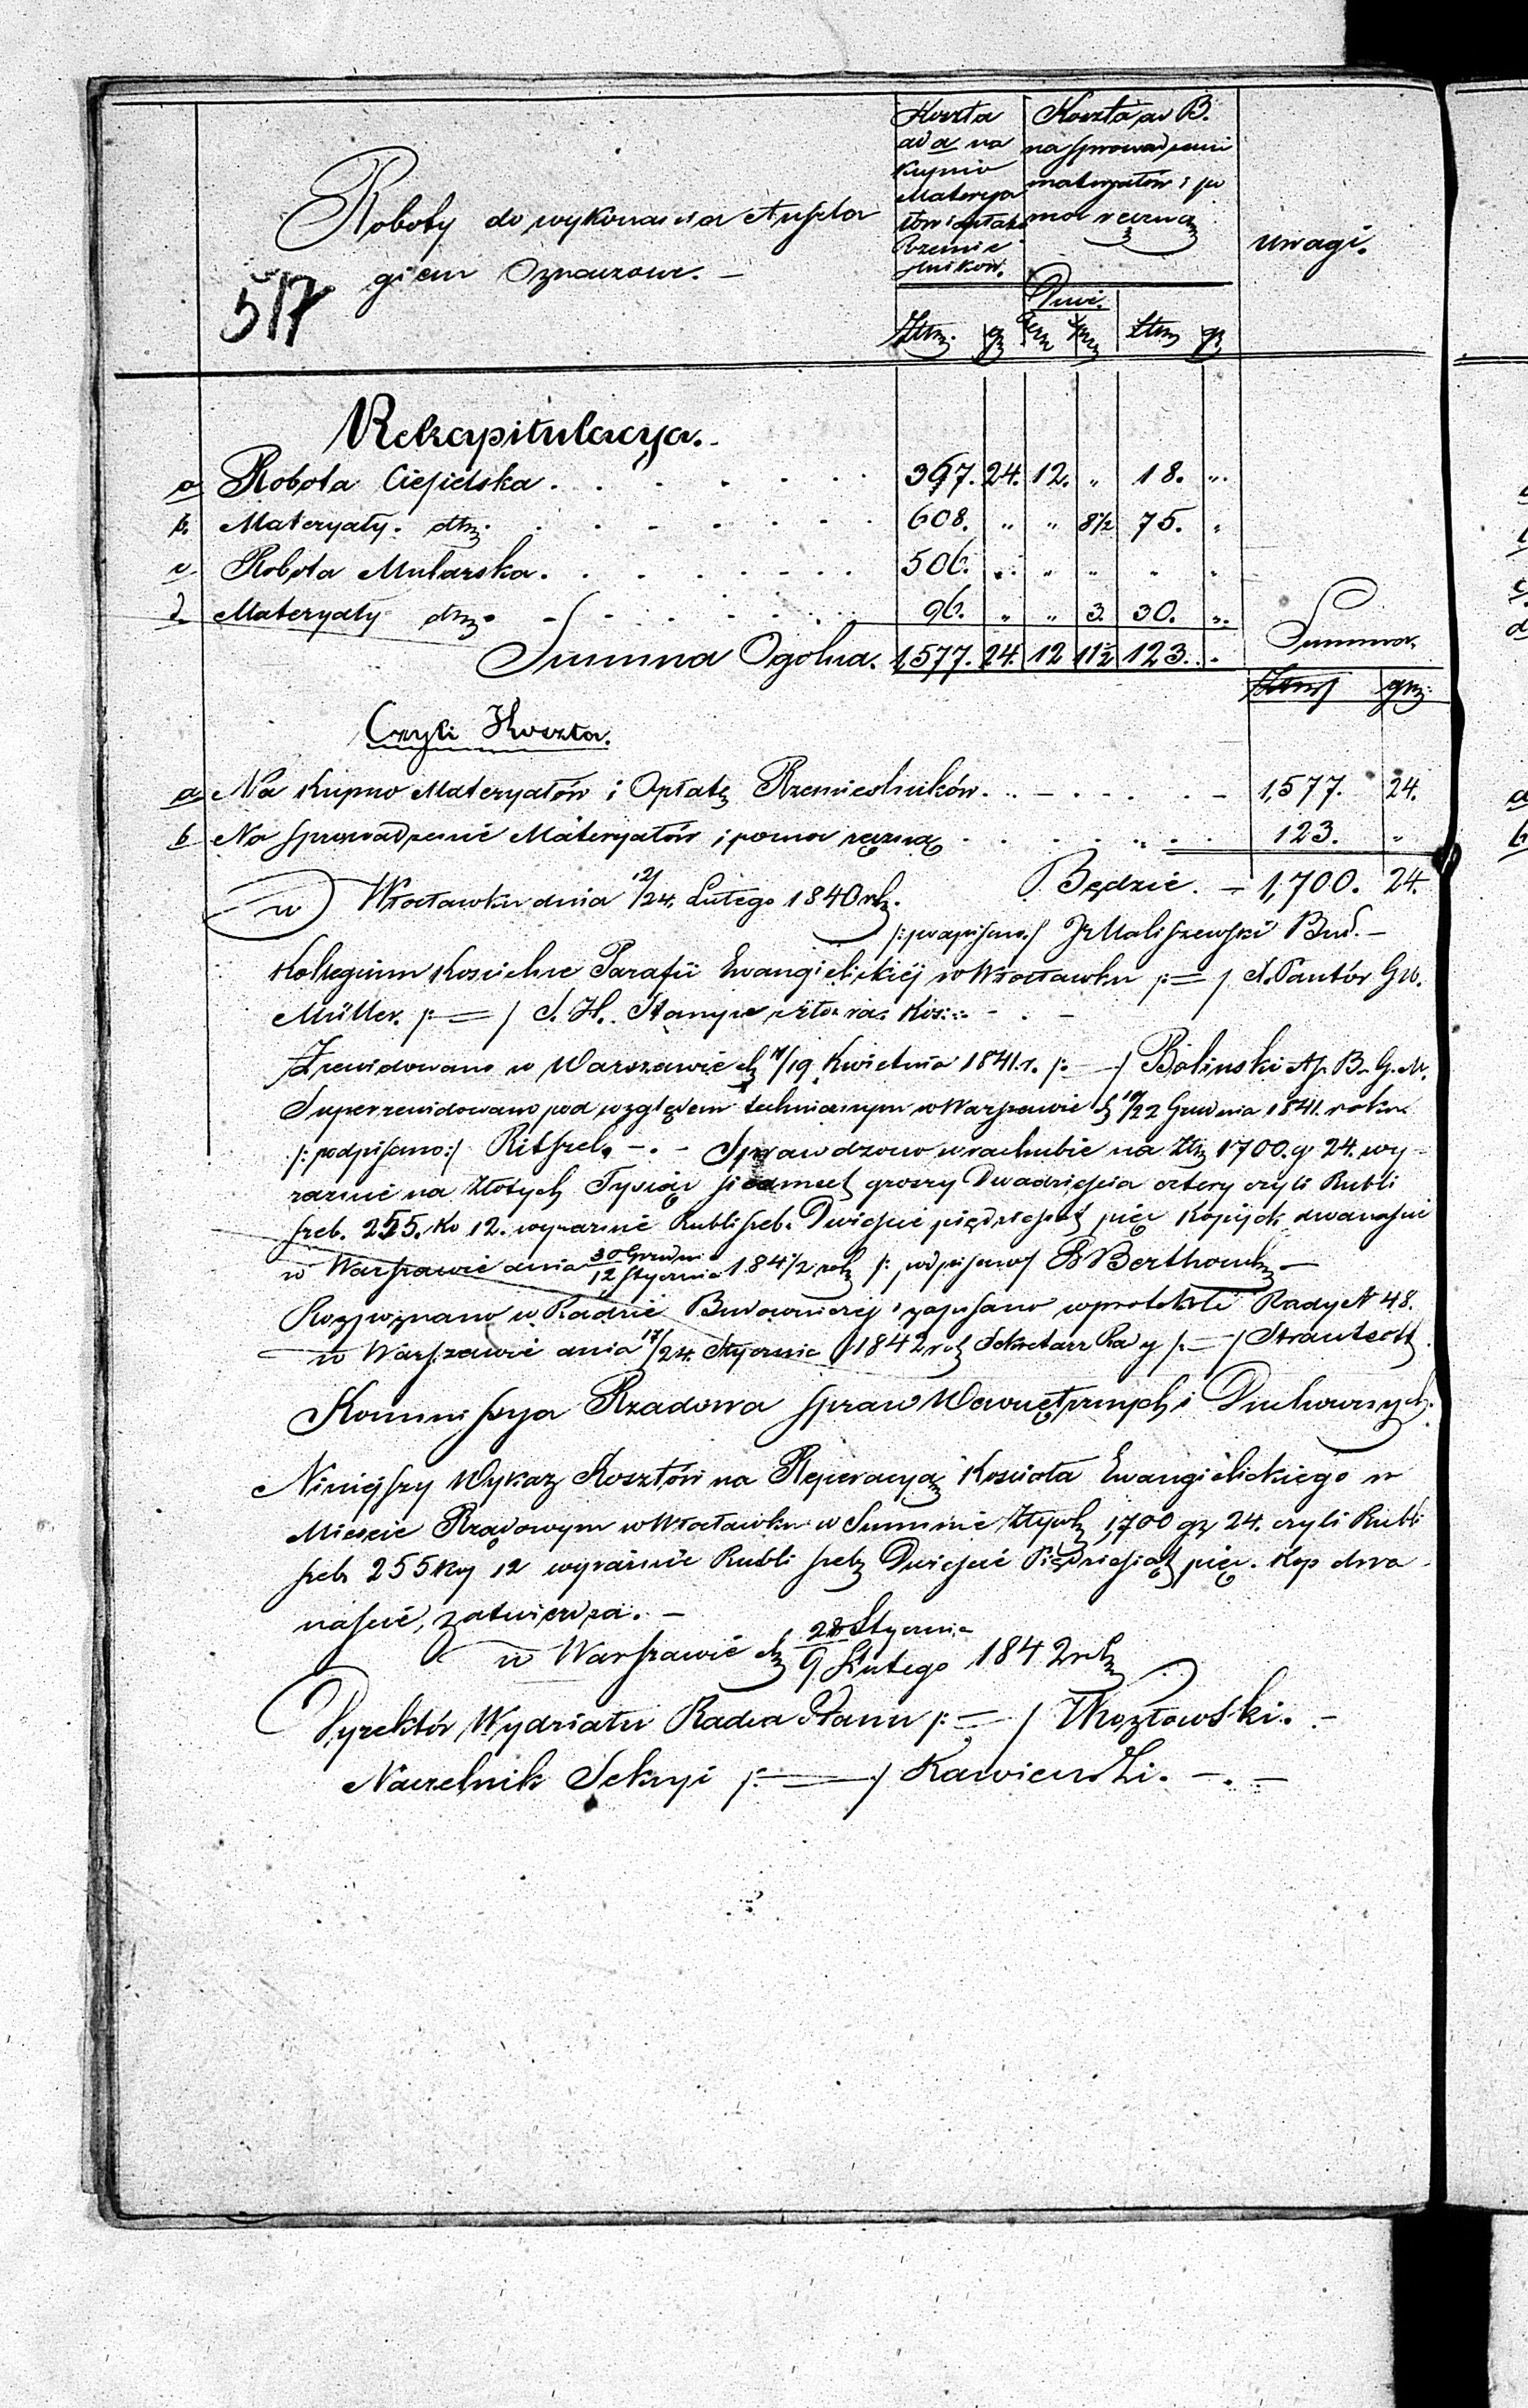 Koszta
ad a na
kupno
Materya
łów i opłatę
Rzemie
slników.
Koszta ad B.
na sprowadzenie
materyałów i po
moc ręczną
Roboty do wykonania Anszla
giem Oznaczone. –
uwagi.
517
Dni.
Złtp. gr Złtp gr
Rekapitulacya.
a Robota Ciesielska . . . . . . . 367. 24. 12. " 18. "
b. Materyały. dtto . . . . . . . 608. " " 8½ 75. "
c. Robota Mularska . . . . . . . 506. " " " " "
d Materyały dtto . . . . . . . 96. " " 3. 30. "
Summa Ogolna. 1,577. 24. 12 11½ 123. "
Summa.
Złtp gr
Czyli Koszta.
a Na kupno Materyałów i Opłatę Rzemieslników . . – . . . . – 1,577. 24.
b Na sprowadzenie Materyałów i pomoc ręczną . . . . . . . 123. "
Będzie. – 1,700. 24.
w Wrocławku dnia 12/24. Lutego 1840 rk.
/:podpisano:/ Maliszewski Bud. –
Kollegium Koscielne Parafii Ewangielickiéj w Wrocławku /:=/ Pastór GW.
Müller. /:=/ S. H.
Zrewidowano w Warszawie d 19 Kwietnia 1841. r. /:–/ Bolinski A. B. G. M.
Superrewidowano pod względem technicznym w Warszawie d 10/22 Grudnia 1841. roku
/:podpisano:/ Ritschel. – . – Sprawdzono w rachubie na Złtp 1700. gr 24. wy-
raznie na Złotych Tysiąc siedmset groszy Dwadzieścia cztery czyli Rubli
sreb. 255. ko 12. wyraznie Rubli sreb. Dwieście pięćdziesiąt pięc Kopijek dwanaście
w Warszawie dnia 30 Grudnia/12 Stycznia 1841/2 rok /:podpisano/
Rozpoznano w Radzie Budowniczéj i zapisano w protokóle Rady N 48.
w Warszawie dnia 24. Stycznia 1842 rok Sekretarz Rady /:–/
Kommissya Rządowa Spraw Wewnętrznych i Duchownych.
Niniejszy Wykaz Kosztów na Reperacyą Kościoła Ewangielickiego w
Miescie Rządowym w Wrocławku w Summie Złtych 1,700 gr 24. czyli Rubli
sreb 255 kop 12 wyraznie Rubli sreb Dwieście Pięćdziesiąt pięc. Kop dwa
naście, zatwierdza. –
w Warszawie d 28 Stycznia/9 Lutego 1842 rok
Dyrektór Wydziału Radca Stanu /:=/ Kozłowski. –
Naczelnik Sekcyi /:=/ Rawienski. – . –